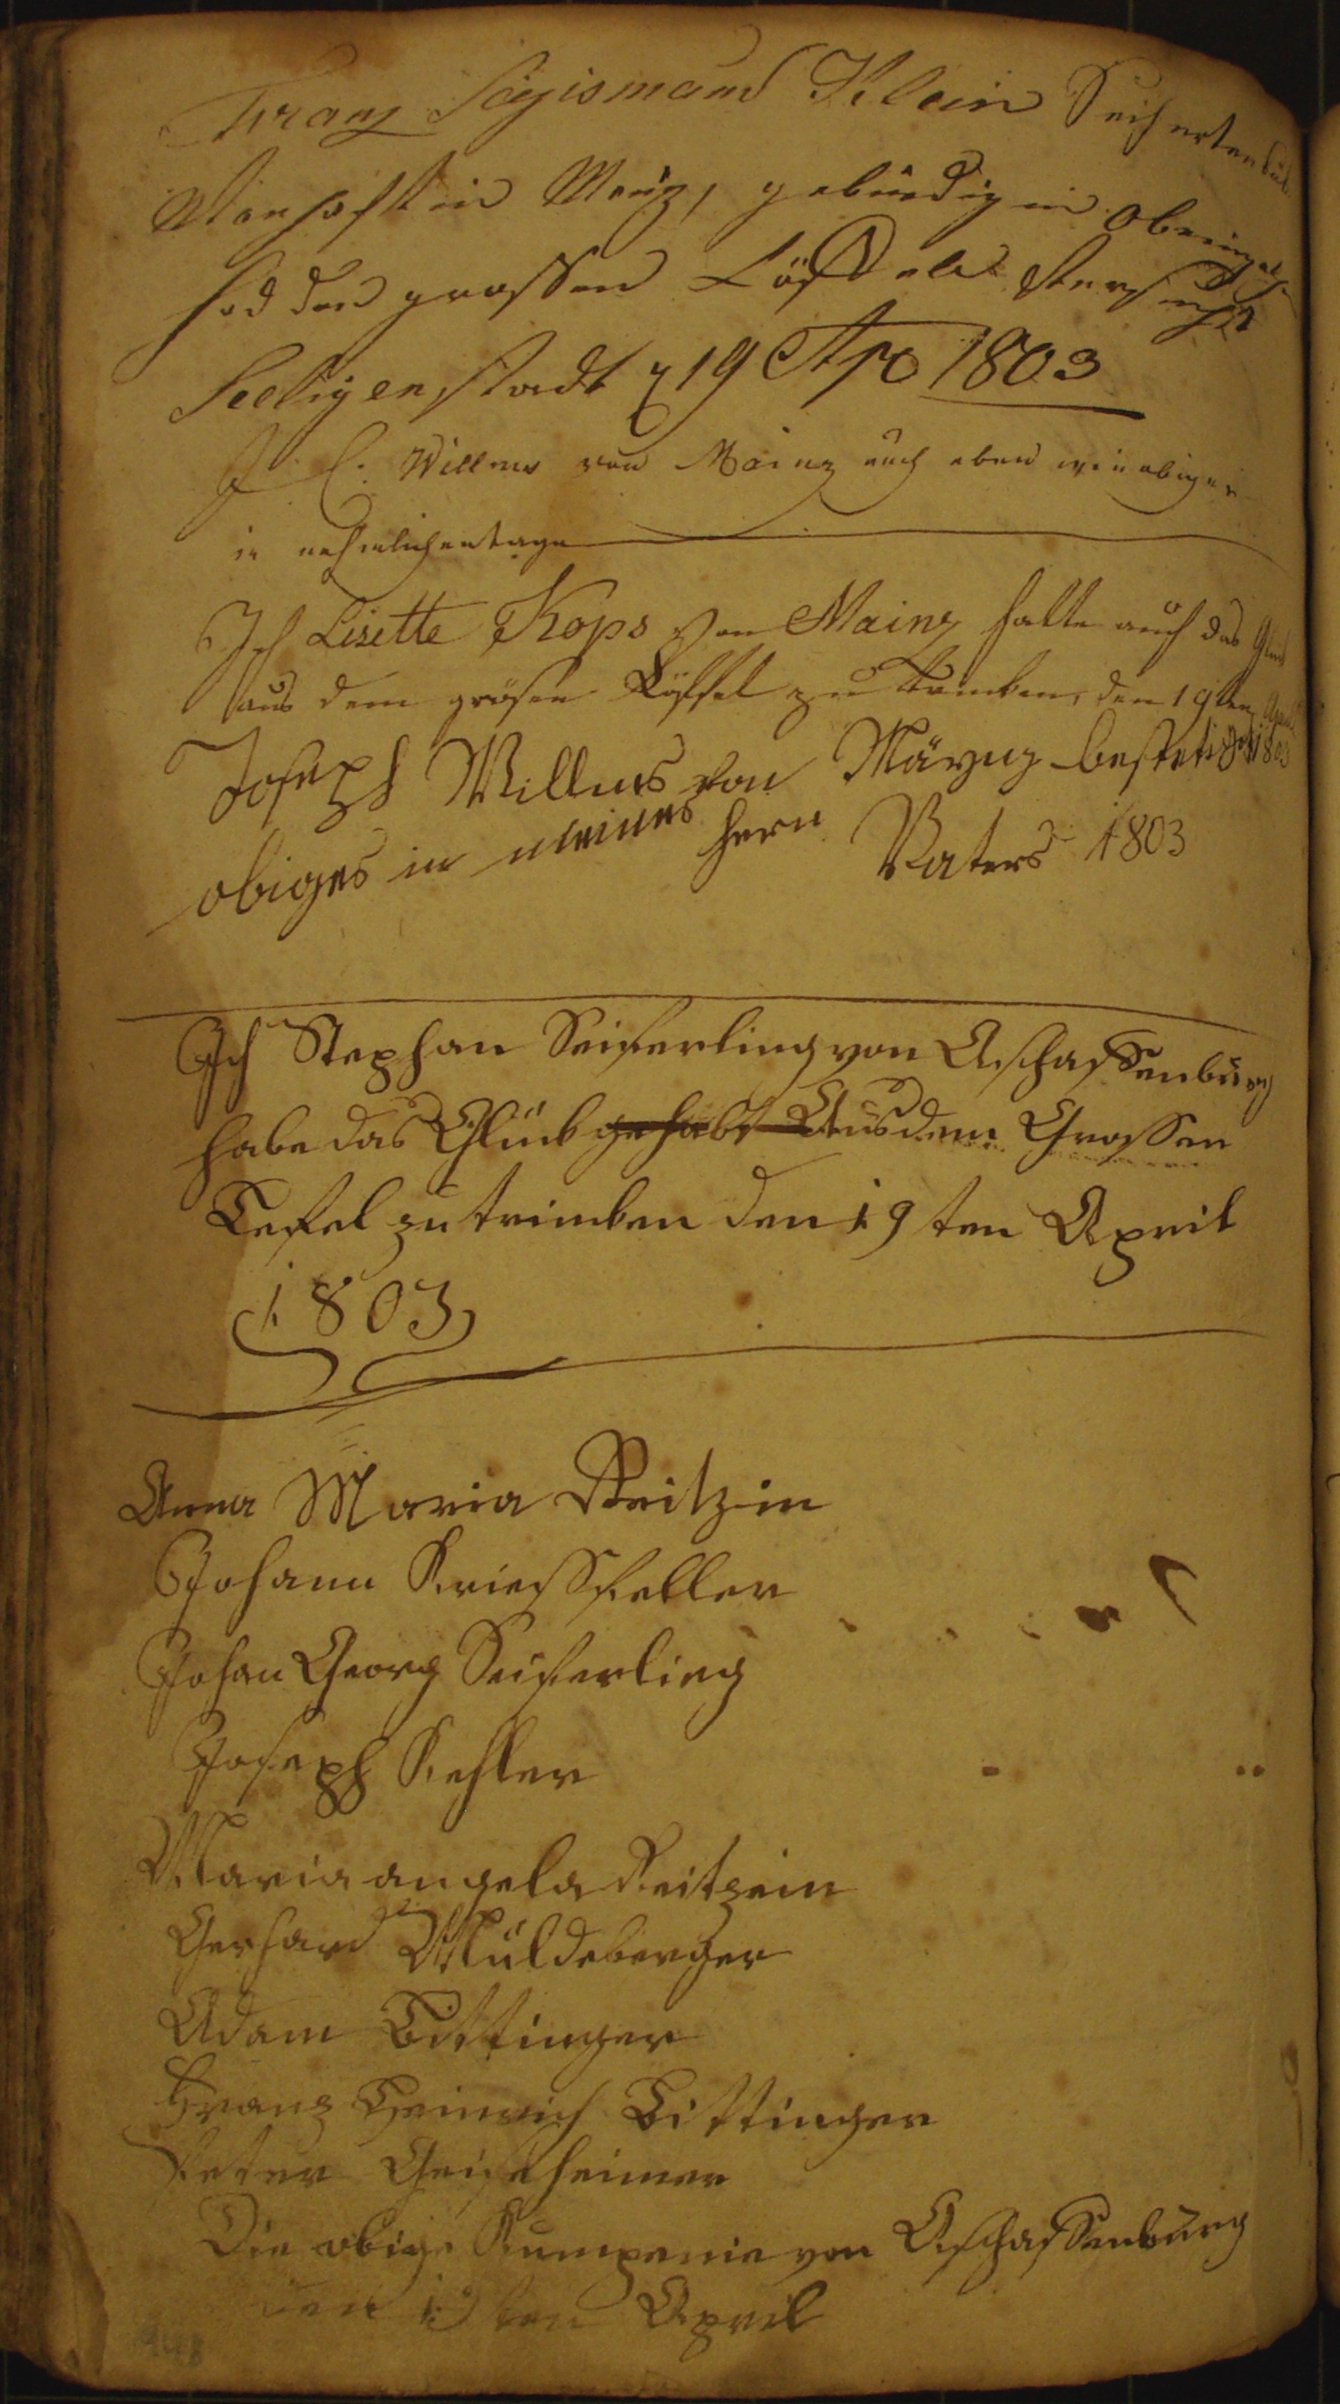 Franz Sigismand Klein
Wonhaft in Menz, gebürdig in
had den grossen Löffel
Seeligenstadt 19 Apr 1803
J. C. Willms von Mainz auch eben wie obiger
in nehmlichentage
Ich Lisette Kops von Mainz hatte auch das Glück
aus dem grosen Löffel zu trinken, den 19ten April
Joseph Willms von Mäynz bestetigt 1803
obiges in meines Hern Vaters 1803
Ich Stephan Seiferling von Aschaffenburg
habe das Glück gehabt Aus dem Grossen
Lefel zu trinken den 19ten April
1803
Anna Maria Reitzin
Johann
Johan Georg Seiferling
Joseph Keßler
Maria angela Reitzein
Gerhard Müldeberger
Adam Bittinger
Franz Heinrich Bittinger
Peter Geisheimer
Die obige Kumpenie von Aschaffenburg
den 19ten April